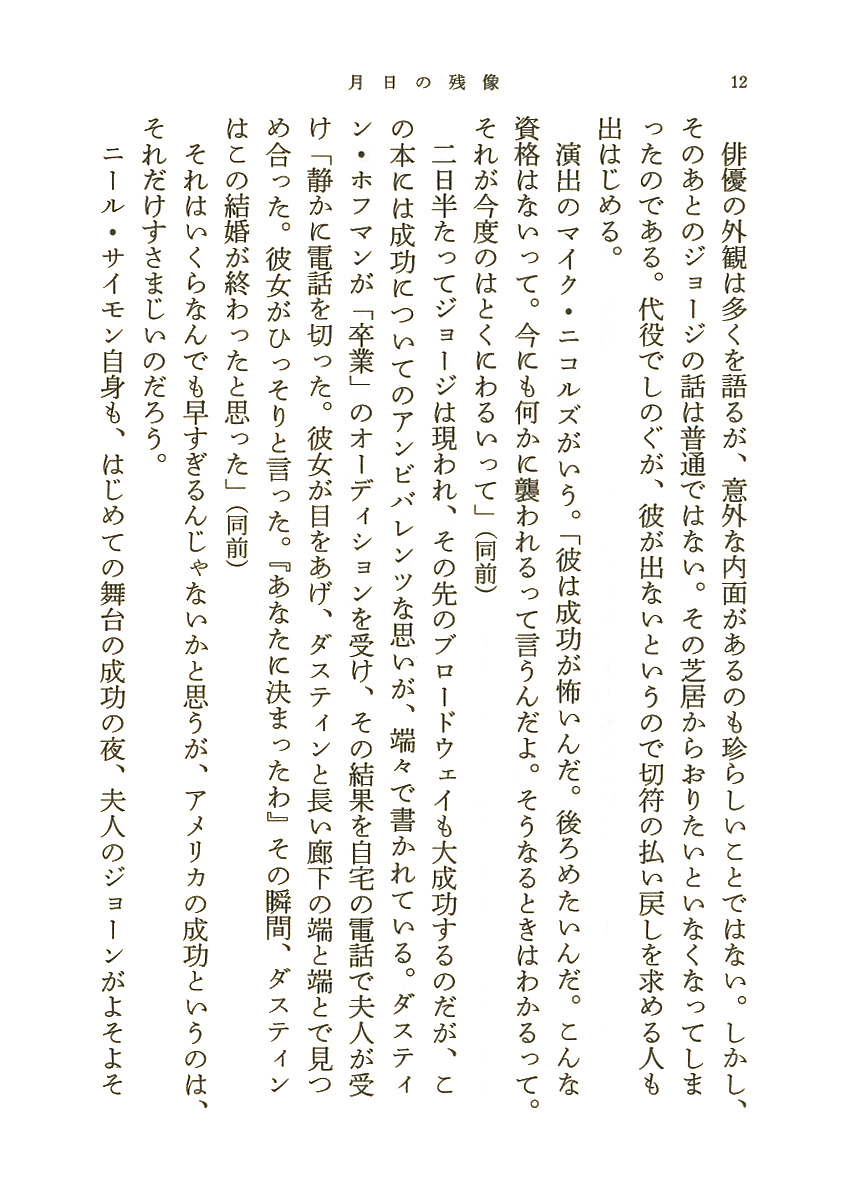 月日の残像
12
俳優の外観は多くを語るが、意外な内面があるのも珍らしいことではない。しかし、
そのあとのジョージの話は普通ではない。その芝居からおりたいといなくなってしま
ったのである。代役でしのぐが、彼が出ないというので切符の払い戻しを求める人も
出はじめる。
演出のマイク・ニコルズがいう。「彼は成功が怖いんだ。後ろめたいんだ。こんな
資格はないって。今にも何かに襲われるって言うんだよ。そうなるときはわかるって。
それが今度のはとくにわるいって」(同前)
二日半たってジョージは現われ、その先のブロードウェイも大成功するのだが、こ
の本には成功についてのアンビバレンツな思いが、端々で書かれている。ダスティ
ン・ホフマンが「卒業」のオーディションを受け、その結果を自宅の電話で夫人が受
け「静かに電話を切った。彼女が目をあげ、ダスティンと長い廊下の端と端とで見つ
め合った。彼女がひっそりと言った。『あなたに決まったわ』その瞬間、ダスティン
はこの結婚が終わったと思った」(同前)
それはいくらなんでも早すぎるんじゃないかと思うが、アメリカの成功というのは、
それだけすさまじいのだろう。
ニール・サイモン自身も、はじめての舞台の成功の夜、夫人のジョーンがよそよそ